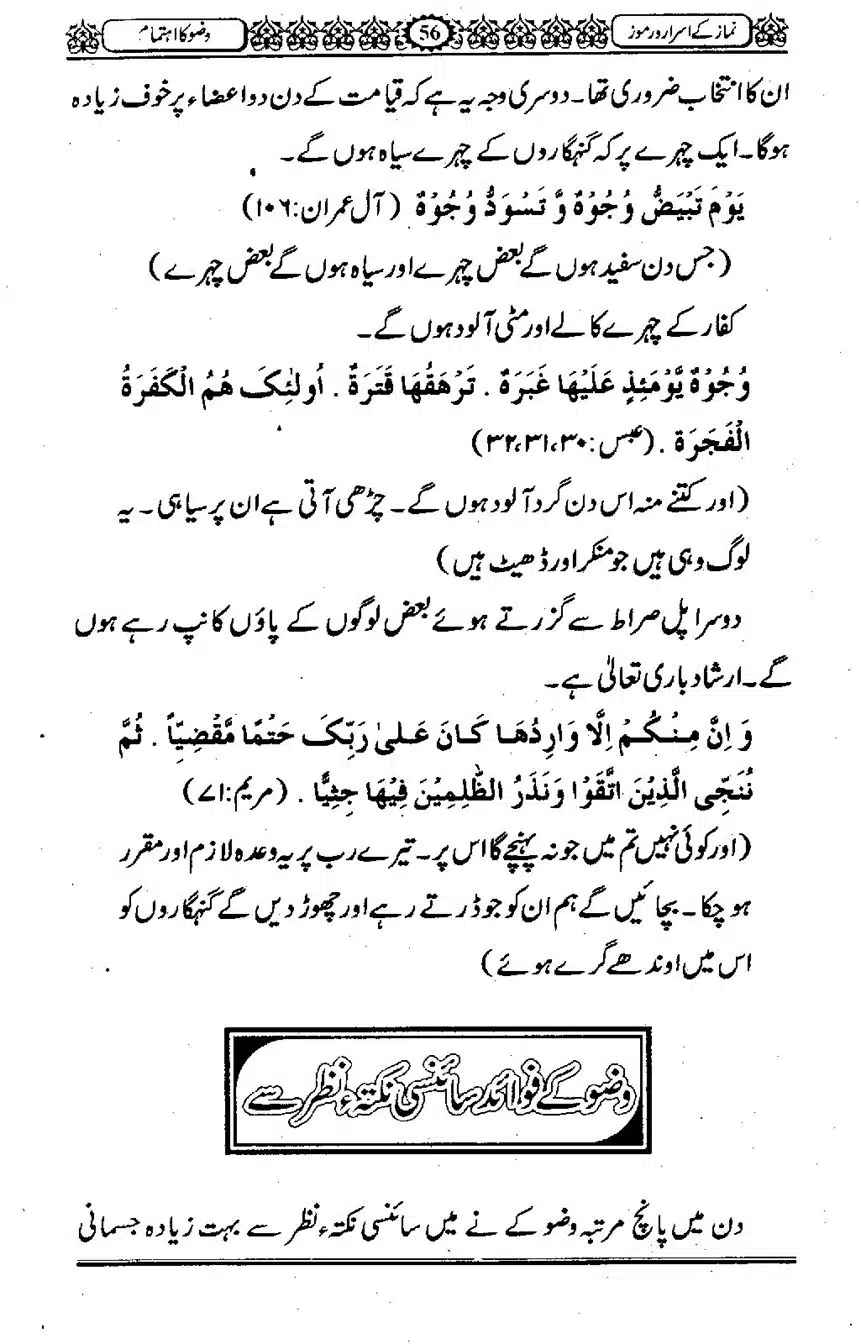 نماز کے اسرار و رموز 56 وضو کا اہتمام
ان کا انتخاب ضروری تھا۔ دوسری وجہ یہ ہے کہ قیامت کے دن دو اعضاء پر خوف زیادہ
ہوگا۔ ایک چہرے پر کہ گنہگاروں کے چہرے سیاہ ہوں گے۔
یَوْمَ تَبْیَضُّ وُجُوْہٌ وَّ تَسْوَدُّ وُجُوْہٌ (آل عمران:۱۰۶)
(جس دن سفید ہوں گے بعض چہرے اور سیاہ ہوں گے بعض چہرے)
کفار کے چہرے کالے اور مٹی آلود ہوں گے۔
وُجُوْہٌ یَّوْمَئِذٍ عَلَیْھَا غَبَرَۃٌ . تَرْھَقُھَا قَتَرَۃٌ . اُولٰئِکَ ھُمُ الْکَفَرَۃُ
الْفَجَرَۃ . (عبس:۳۰،۳۱،۳۲)
(اور کتنے منہ اس دن گرد آلود ہوں گے۔ چڑھی آتی ہے ان پر سیاہی۔ یہ
لوگ وہی ہیں جو منکر اور ڈھیٹ ہیں)
دوسرا پل صراط سے گزرتے ہوئے بعض لوگوں کے پاؤں کانپ رہے ہوں
گے۔ ارشاد باری تعالیٰ ہے۔
وَ اِنَّ مِنْکُمْ اِلَّا وَارِدُھَا کَانَ عَلیٰ رَبِّکَ حَتْمًا مَّقْضِیّاً . ثُمَّ
نُنَجِّی الَّذِیْنَ اتَّقَوْا وَنَذَرُ الظّٰلِمِیْنَ فِیْھَا جِثِیًّا . (مریم:۷۱)
(اور کوئی نہیں تم میں جو نہ پہنچے گا اس پر۔ تیرے رب پر یہ وعدہ لازم اور مقرر
ہو چکا۔ بچائیں گے ہم ان کو جو ڈرتے رہے اور چھوڑ دیں گے گنہگاروں کو
اس میں اوندھے گرے ہوئے)
وضو کے فوائد سائنسی نکتہء نظر سے
دن میں پانچ مرتبہ وضو کے نے میں سائنسی نکتہء نظر سے بہت زیادہ جسمانی